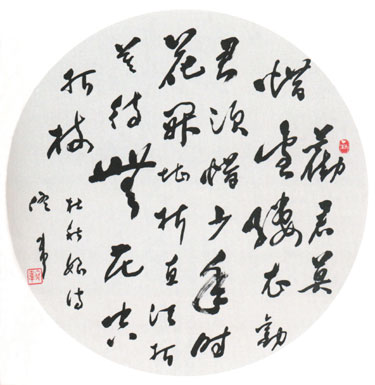 勸君莫
惜金縷衣勸
君須惜少年時
花開堪折直須折
莫待無花空
折枝
杜秋娘诗